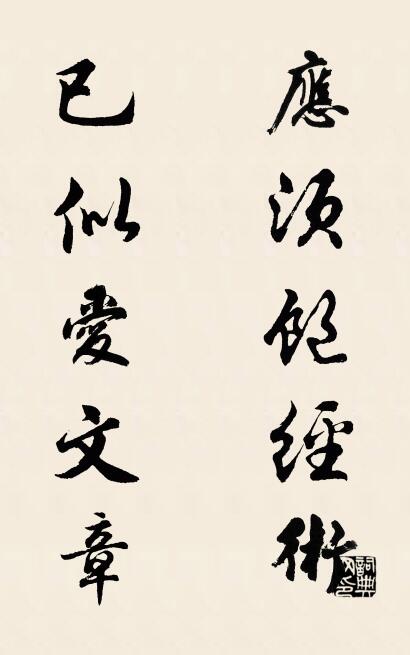 應須飽經術
已似愛文章